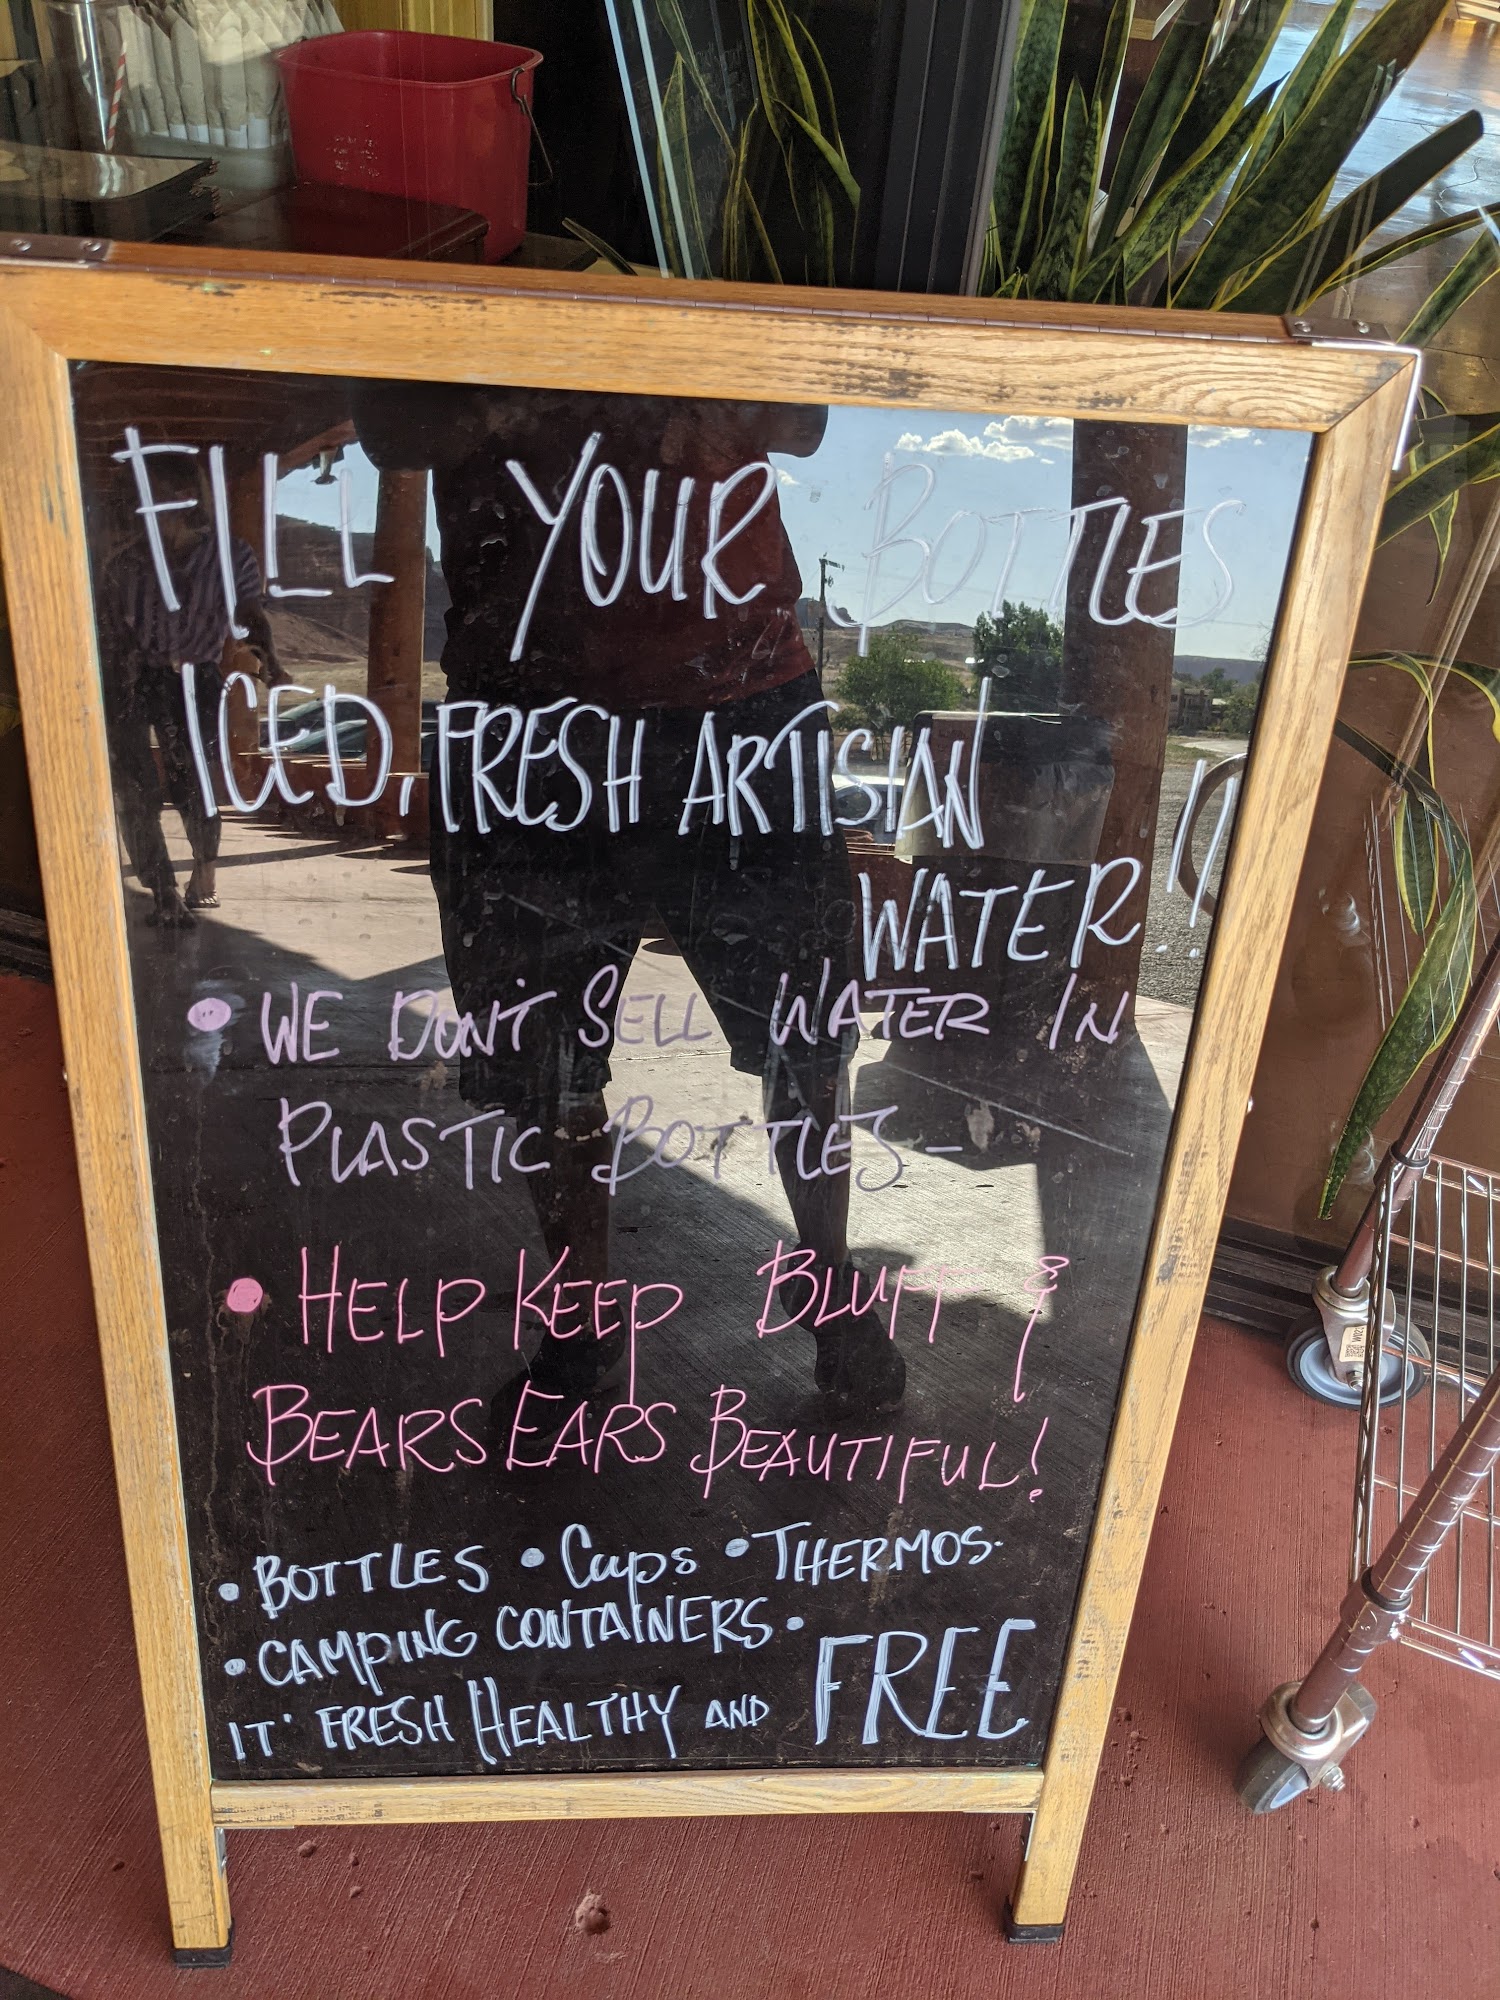 FILL YOUR BOTTLES
ICED, FRESH ARTISIAN
WATER!!
• WE DON'T SELL WATER IN
PLASTIC BOTTLES –
• HELP KEEP BLUFF &
BEARS EARS BEAUTIFUL!
• BOTTLES • Cups • THERMOS •
• CAMPING CONTAINERS •
IT' FRESH HEALTHY AND FREE